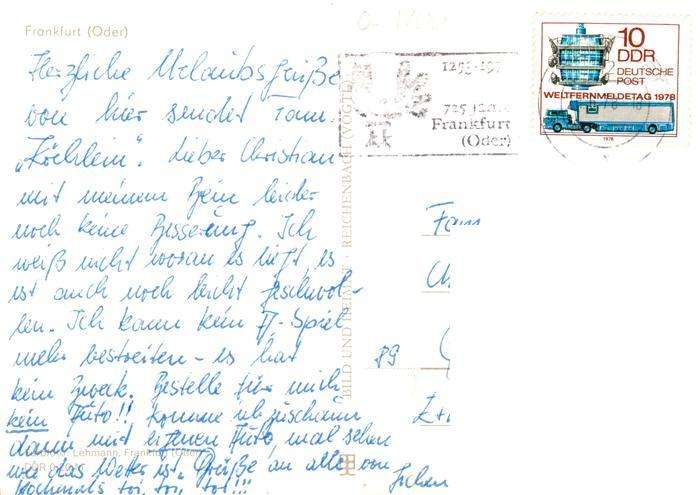 Frankfurt (Oder)
Herzliche Urlaubsgrüße
von hier sendet Fam.
"Köchlein". Lieber Christian
mit meinem Bein leider
noch keine Besserung. Ich
weiß nicht woran es liegt, es
ist auch noch leicht geschwol-
len. Ich kann kein TT-Spiel
mehr bestreiten - es hat
kein Zweck. Bestelle für mich
kein Auto!! Komme ich zuschaun
dann mit eigenen Auto, mal sehen
wie das Wetter ist. Grüße an alle von
Nochmals toi, toi, toi!!!
Lehmann, Frankfurt (Oder)
BILD UND HEIMAT REICHENBACH (VOGTL)
1253-197
725 Jahre
Frankfurt
(Oder)
10
DDR
DEUTSCHE
POST
WELTFERNMELDETAG 1978
1978
Fam
Ch
89